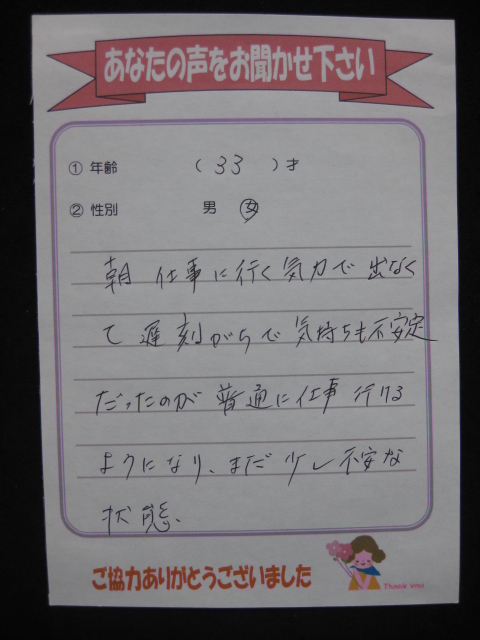 あなたの声をお聞かせ下さい
① 年齢 ( 33 )才
② 性別 男 女
朝 仕事に行く気力で出なく
て 遅刻がちで 気持ちも不安定
だったのが 普通に仕事 行ける
ようになり、まだ 少し 不安な
状態、
ご協力ありがとうございました
Thank you